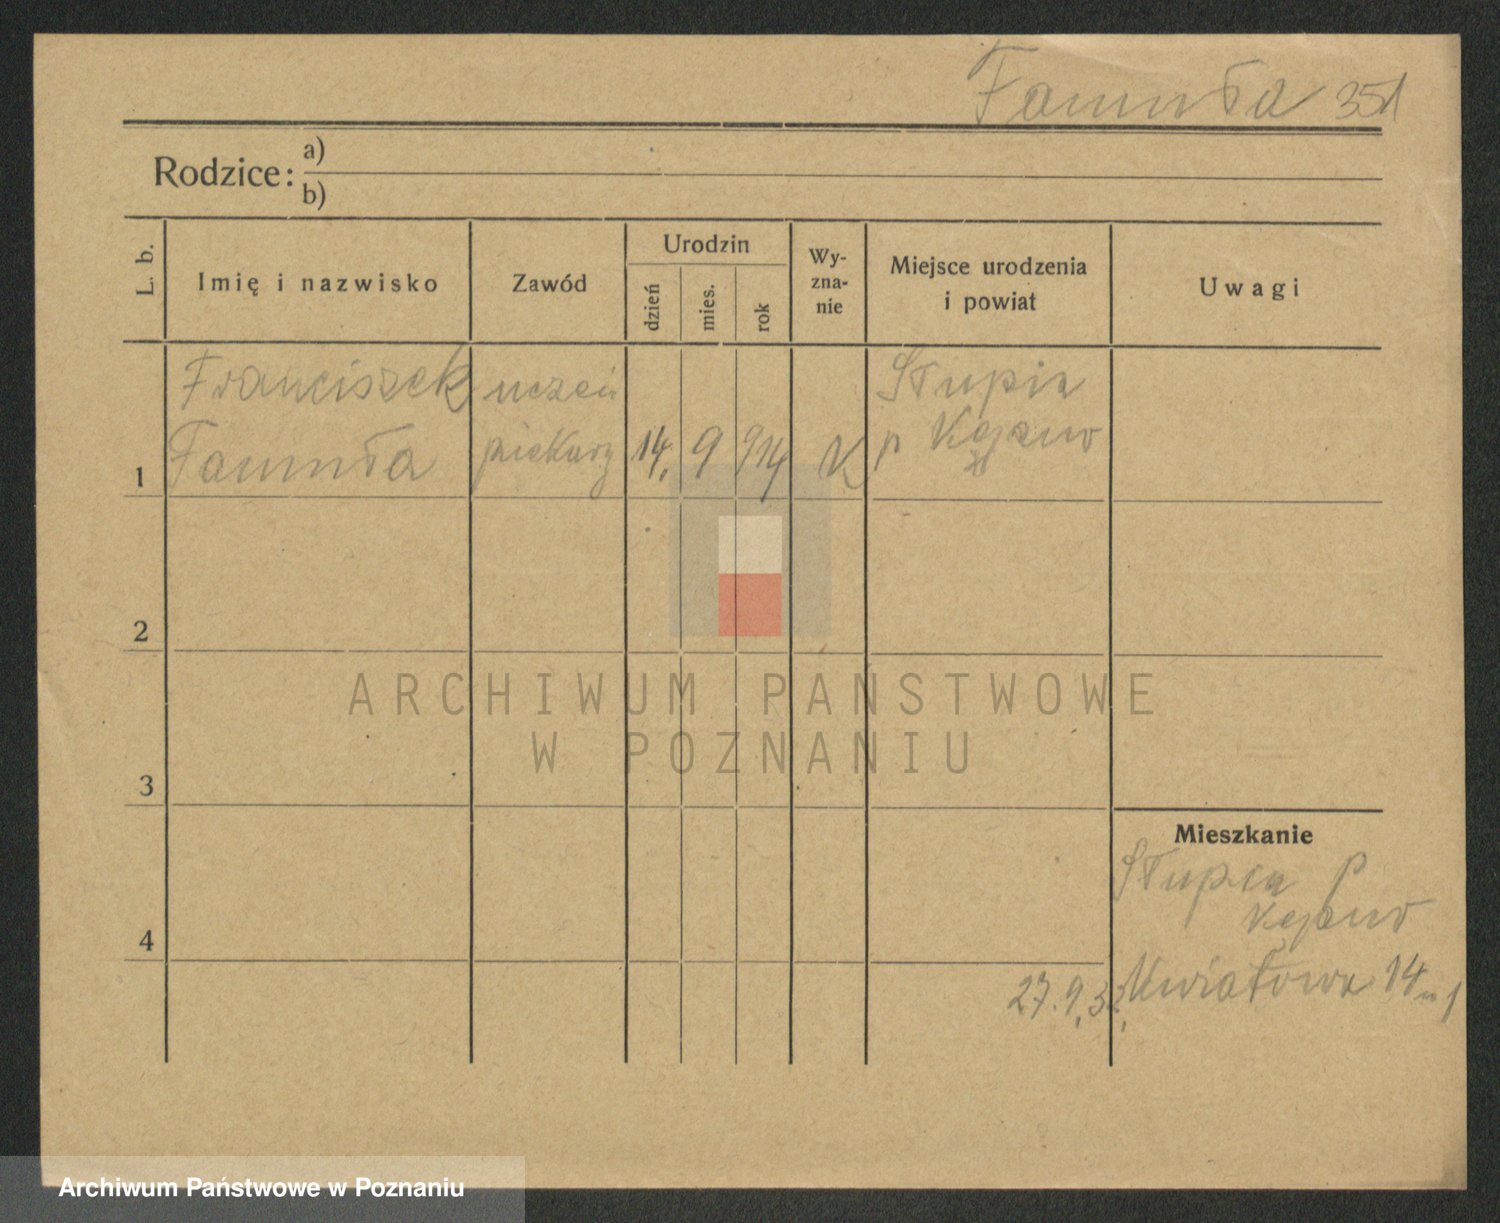 Famuła 351
Rodzice:
a)
b)
L. b.
Imię i nazwisko
Zawód
Urodzin
dzień
mies.
rok
Wy-
zna-
nie
Miejsce urodzenia
i powiat
Uwagi
Franciszek uczeń Słupia
1 Famuła piekarz 14. 9 914 K p Kępno
2
ARCHIWUM PAŃSTWOWE
W POZNANIU
3
Mieszkanie
Słupia p
Kępno
4
27.9.32. Kwiatowa 14 m 1
Archiwum Państwowe w Poznaniu